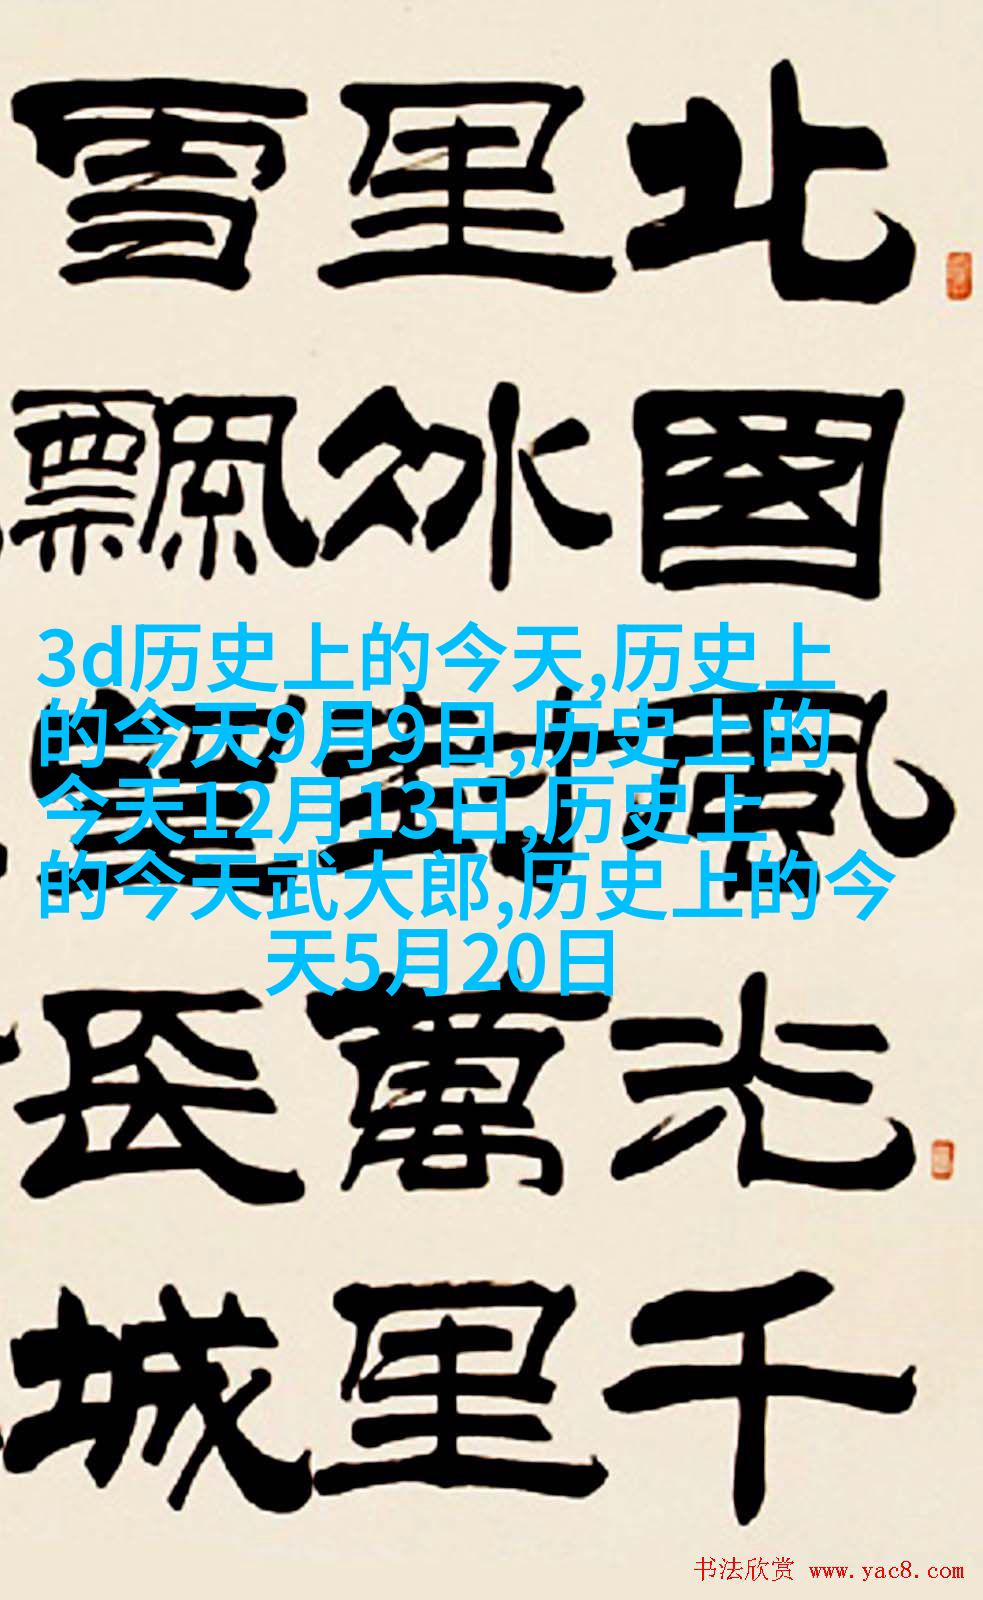 北國風光千
里冰封萬里
雪飄望長城
3d历史上的今天,历史上
的今天9月9日,历史上的
今天12月13日,历史上
的今天武大郎,历史上的今
天5月20日
书法欣赏 www.yac8.com